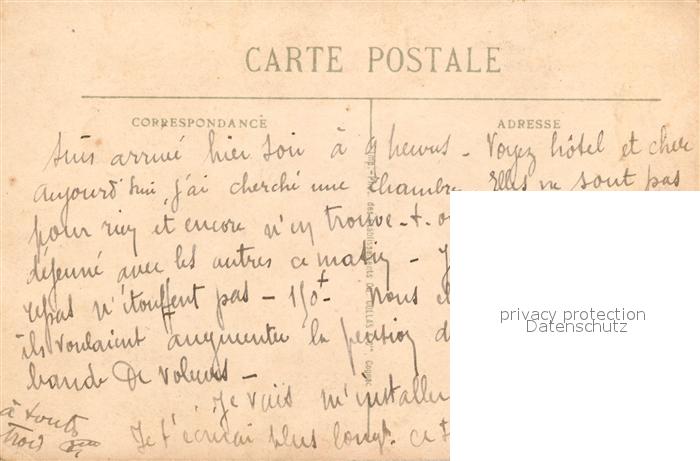 CARTE POSTALE
CORRESPONDANCE
ADRESSE
suis arrivé hier soir à heures - Voyez hôtel et chere
aujourd'hui j'ai cherché une chambre Elles ne sont pas
pour rien et encore n'en trouve-t-o
déjeuné avec les autres ce matin - J
repas n'étouffent pas - 150 - Nous
ils voulaient augmenter la pension d
bande de voleurs -
Je vais m'installer
à toutes
trois
Je t'écrirai plus longt. ce
privacy protection
Datenschutz